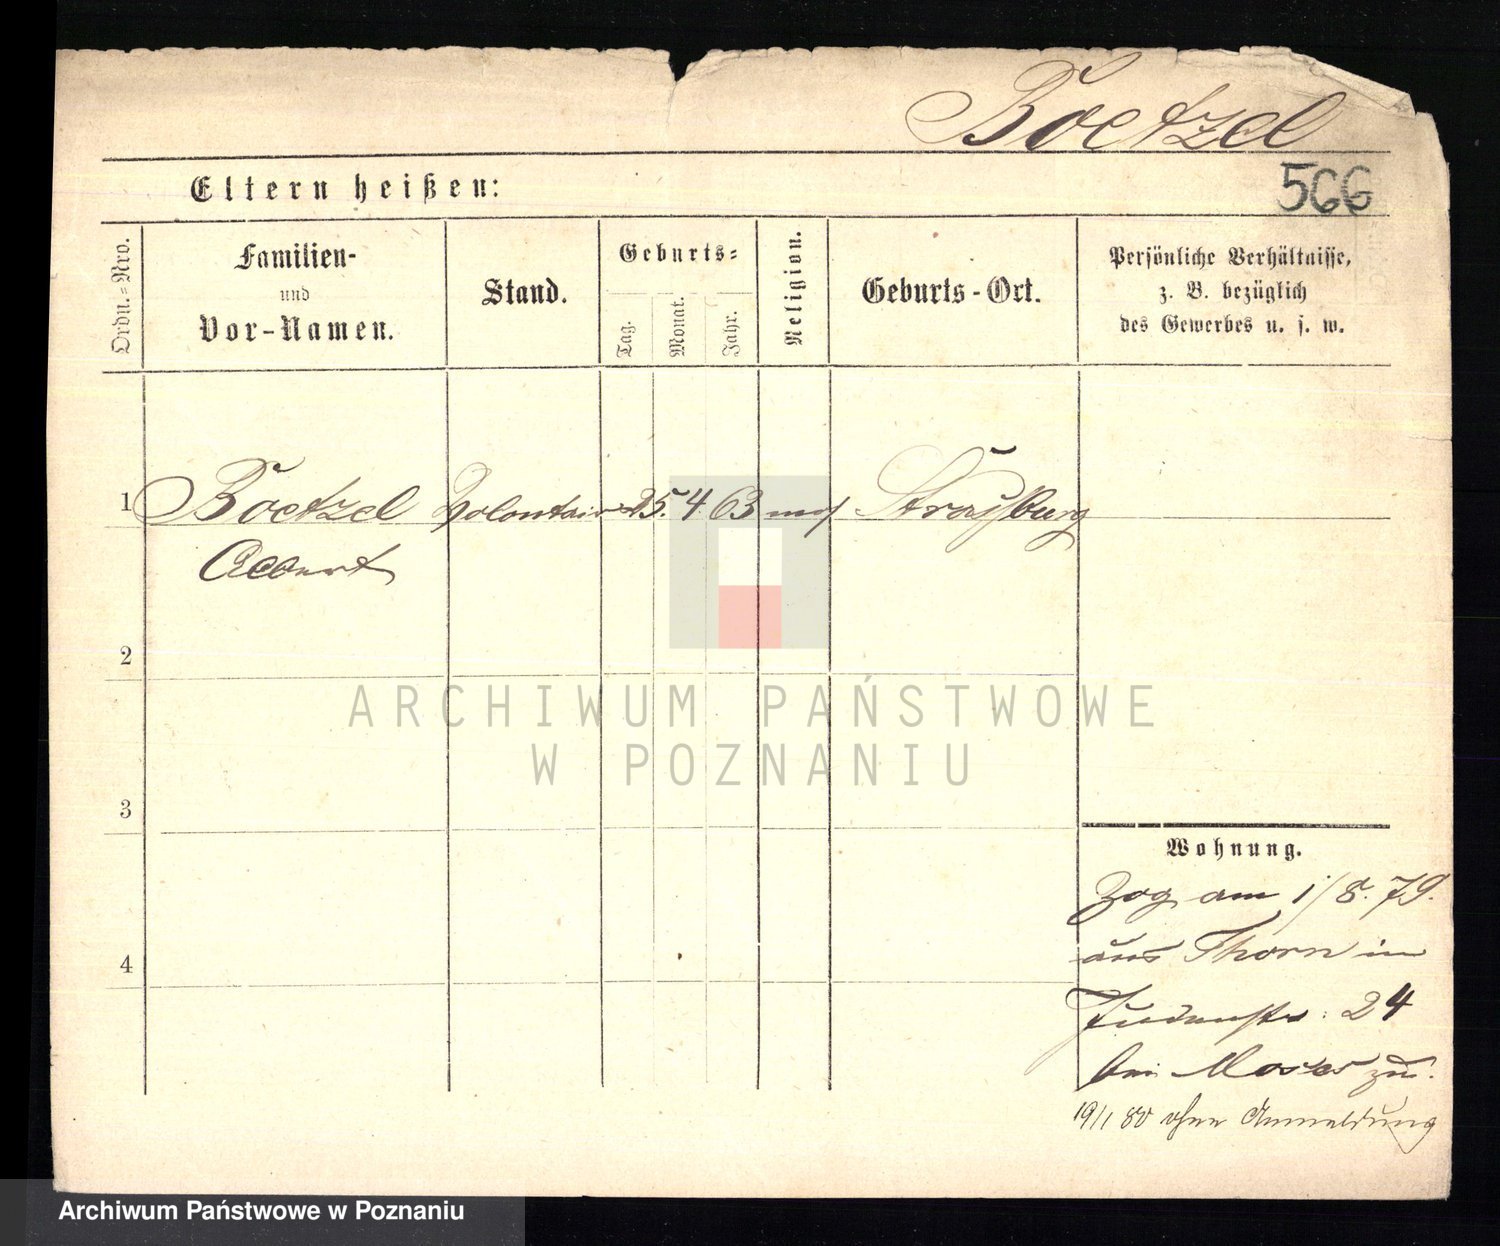 Boetzel
Eltern heißen:
566
Ordn.-Nro.
Familien-
und
Vor-Namen.
Stand.
Geburts-
Tag.
Monat.
Jahr.
Religion.
Geburts-Ort.
Persönliche Verhältnisse,
z. B. bezüglich
des Gewerbes u. s. w.
1 Boetzel Volontair 25. 4. 63 mos Straßburg
Albert
2
3
4
Wohnung.
Zog am 1/8. 79.
aus Thorn in
Judenstr: 24
bei Moses zu.
19/1 80 ohne Anmeldung
ARCHIWUM PAŃSTWOWE
W POZNANIU
Archiwum Państwowe w Poznaniu